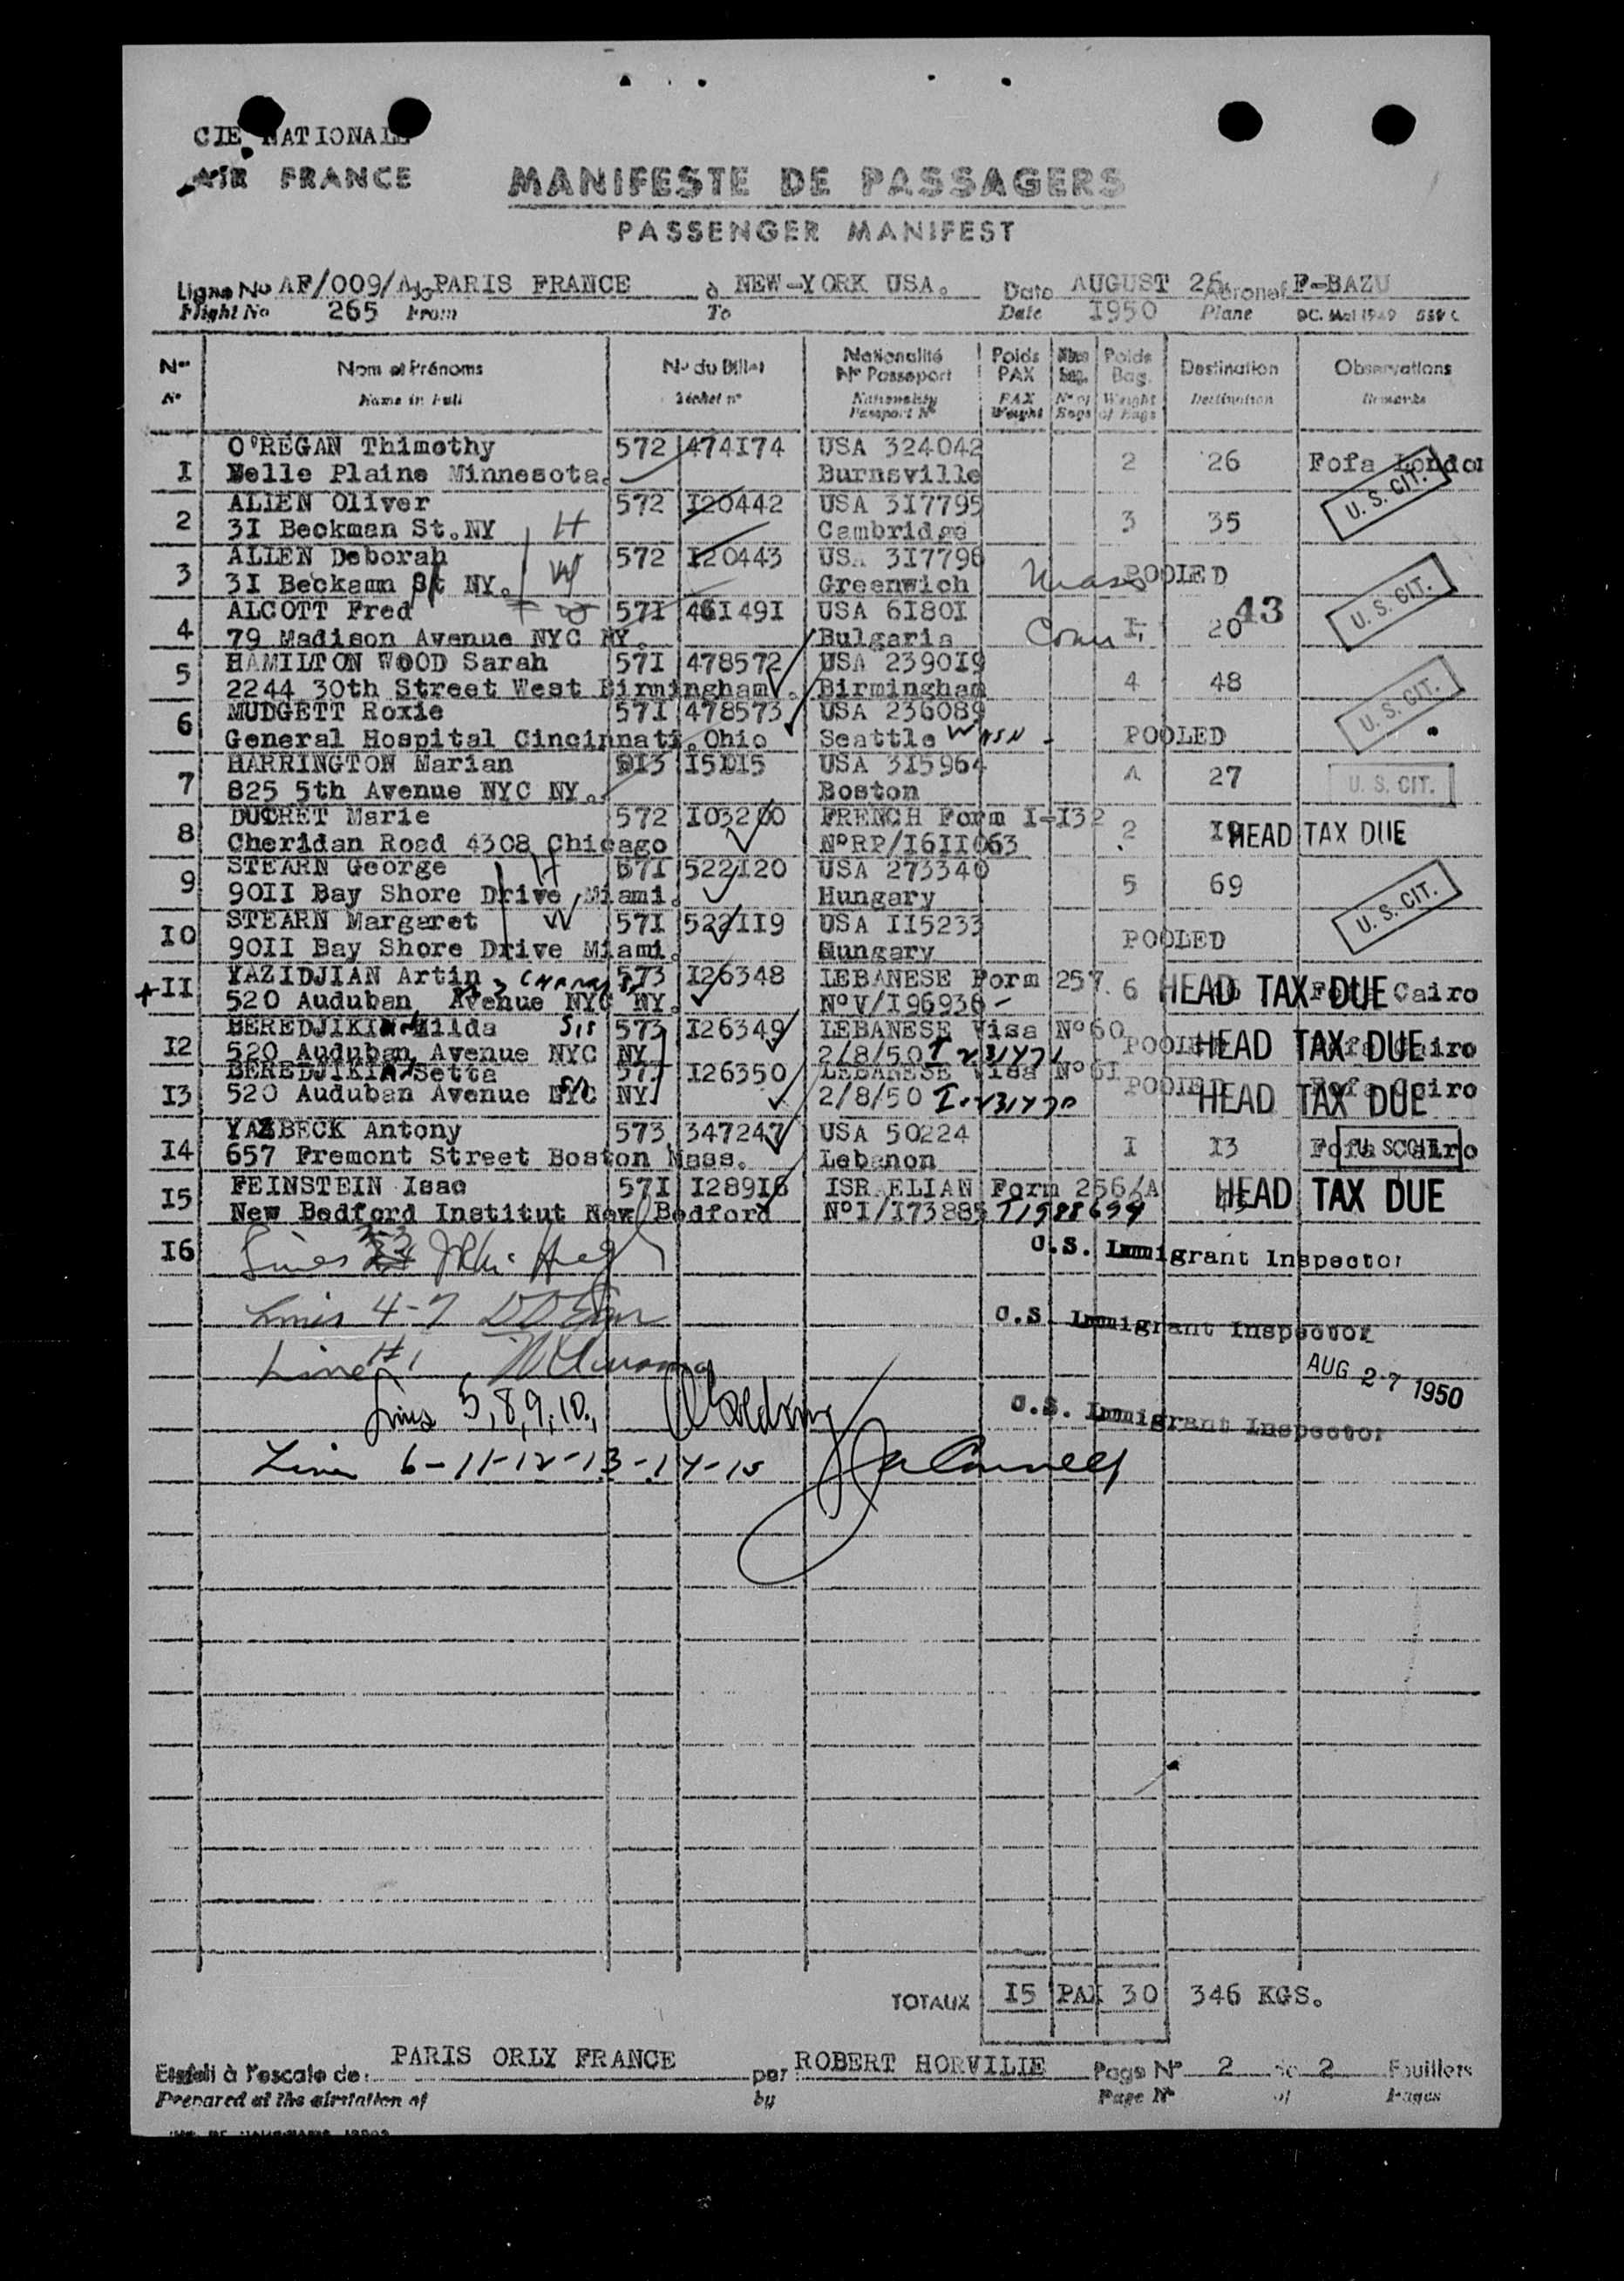 CIE NATIONALE
AIR FRANCE
MANIFESTE DE PASSAGERS
PASSENGER MANIFEST
Ligne No AF/009/A de PARIS FRANCE à NEW-YORK USA. Date AUGUST 26 Aéronef F-BAZU
Flight No 265 From To Date I950 Plane
Nos Nom et Prénoms No du Billet Nationalité No Passeport Poids PAX Nbre Bag. Poids Bag. Destination Observations
No Name in Full Ticket no Nationality Passport No PAX Weight No of Bags Weight of Bags Destination Remarks
I O'REGAN Thimothy 572 474I74 USA 324042 2 26 Fofa London
Belle Plaine Minnesota. Burnsville U. S. CIT.
2 ALIEN Oliver 572 I20442 USA 3I7795 3 35
3I Beckman St.NY H Cambridge
3 ALIEN Deborah 572 I20443 USA 3I7796 POOLED
3I Beckamn St NY. W Greenwich Mass U. S. CIT.
4 ALCOTT Fred 57I 46I49I USA 6I80I I 20 43
79 Madison Avenue NYC NY. Bulgaria Conn
5 HAMILTON WOOD Sarah 57I 478572 USA 2390I9 4 48
2244 30th Street West Birmingham. Birmingham U. S. CIT.
6 MUDGETT Roxie 57I 478573 USA 236089 POOLED
General Hospital Cincinnati.Ohio Seattle WASN -
7 HARRINGTON Marian I5I15 USA 3I5964 27
825 5th Avenue NYC NY. Boston U. S. CIT.
8 DUCRET Marie 572 I03200 FRENCH Form I-I32 2 HEAD TAX DUE
Cheridan Road 4308 Chicago NoRP/I6II063
9 STEARN George H 57I 522I20 USA 273340 5 69
90II Bay Shore Drive Miami. Hungary U. S. CIT.
I0 STEARN Margaret W 57I 522II9 USA II5233 POOLED
90II Bay Shore Drive Miami. Hungary
+II YAZIDJIAN Artin 573 I26348 LEBANESE Form 257 6 HEAD TAX DUE Fofa Cairo
520 Auduban Avenue NYC NY. NoV/I96936 -
I2 BEREDJIKIAN Hilda Sis 573 I26349 LEBANESE Visa No60 POOLED HEAD TAX DUE Fofa Cairo
520 Auduban Avenue NYC NY 2/8/50
I3 BEREDJIKIAN Setta Sis I26350 LEBANESE Visa No6I POOLED HEAD TAX DUE Fofa Cairo
520 Auduban Avenue NYC NY 2/8/50
I4 YAZBECK Antony 573 347247 USA 50224 I I3 Fofa Cairo U. S. CIT.
657 Fremont Street Boston Mass. Lebanon
I5 FEINSTEIN Isac 57I I289I6 ISRAELIAN Form 256/A HEAD TAX DUE
New Bedford Institut New Bedford NoI/I73885
I6 Lines U.S. Immigrant Inspector
Lines 4-7 U.S. Immigrant Inspector
Line #1
AUG 27 1950
Lines 5,8,9,10, U.S. Immigrant Inspector
Line 6-11-12-13-14-15
TOTAUX I5 PAX 30 346 KGS.
Etabli à l'escale de: PARIS ORLY FRANCE par ROBERT HORVILIE Page No 2 de 2 Feuillets
Prepared at the airstation of by Page No of Pages